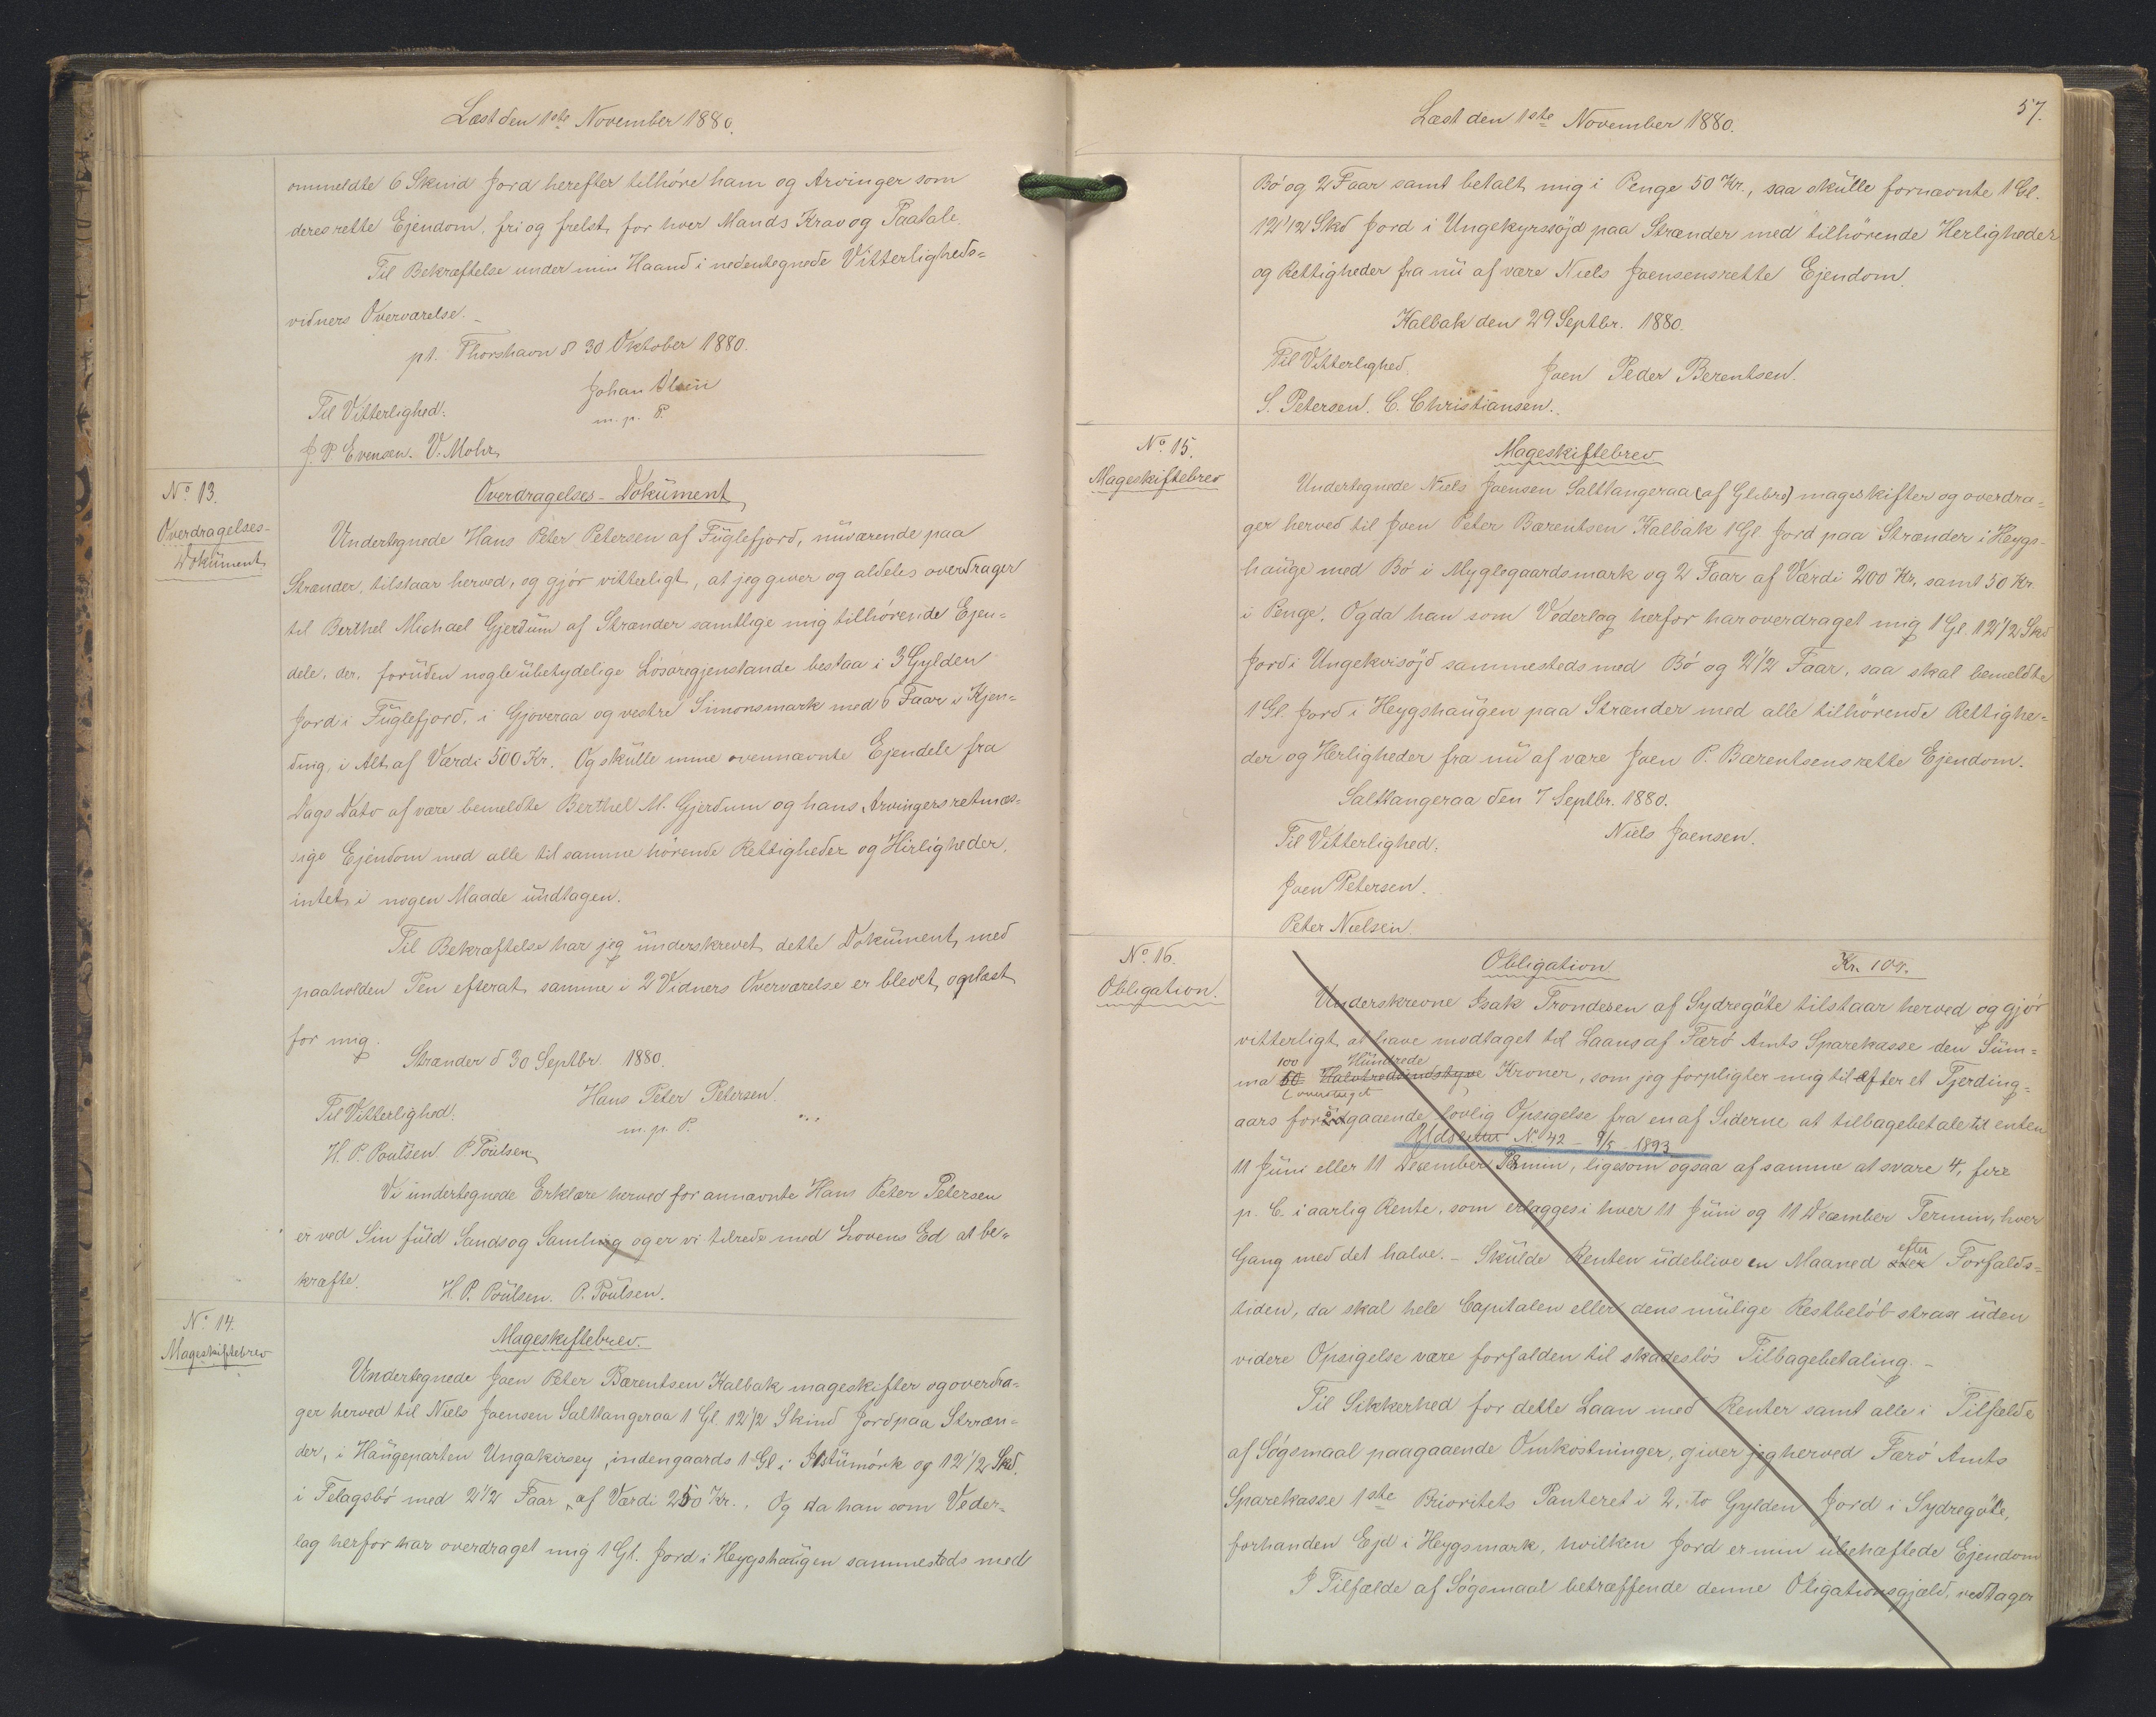 Læst den 1ste November 1880.
ommeldte 6 Skind Jord herefter tilhøre ham og Arvinger som
deres rette Ejendom, fri og frelst for hver Mands Krav og Paatale.
Til Bekræftelse under min Haand i nedentegnede Vitterligheds-
vidners Overværelse.
pt. Thorshavn d 30 Oktober 1880.
Johan Olsen
Til Vitterlighed.
m. p. P.
J. P. Evensen. V. Mohr,
No. 13.
Overdragelses-
Dokument
Overdragelses-Dokument
Undertegnede Hans Peter Petersen af Fuglefjord, nuværende paa
Strænder, tilstaar herved, og gjør vitterligt, at jeg giver og aldeles overdrager
til Berthel Michael Gjerdum af Strænder samtlige mig tilhørende Ejen-
dele, der, foruden nogle ubetydelige Løsøregjenstande bestaa i 3 Gylden
Jord i Fuglefjord, i Gjøveraa og vestre Simonsmark med 6 Faar i Kjen-
ding, i Alt af Værdi 500 Kr. Og skulle mine ovennævnte Ejendele fra
Dags Dato af være bemeldte Berthel M. Gjerdum og hans Arvingers retmæs-
sige Ejendom med alle til samme hørende Rettigheder og Herligheder,
intet i nogen Maade undtagen.
Til Bekræftelse har jeg underskrevet dette Dokument med
paaholden Pen efterat samme i 2 Vidners Overværelse er blevet oplæst
for mig.
Strænder d 30 Septbr. 1880.
Hans Peter Petersen.
Til Vitterlighed.
m. p. P.
H. P. Poulsen. P. Poulsen,
Vi undertegnede Erklære herved for annævnte Hans Peter Petersen
er ved Sin fuld Sands og Samling og er vi tilrede med Lovens Ed at be-
kræfte.
H. P. Poulsen. P. Poulsen.
No. 14.
Mageskiftebrev
Mageskiftebrev.
Undertegnede Joen Peter Bærentsen Kalbak mageskifter og overdra-
ger herved til Niels Joensen Saltlangeraa 1 Gl. 12 1/2 Skind Jord paa Stræn-
der, i Haugeparten Ungakirsey, indengaards 1 Gl i Istumørk og 12 1/2 Skd.
i Felagsbø med 2 1/2 Faar, af Værdi 250 Kr. Og da han som Veder-
lag herfor har overdraget mig 1 Gl. Jord i Heygshaugen sammesteds med
57.
Læst den 1ste November 1880.
Bø og 2 Faar samt betalt mig i Penge 50 Kr., saa skulle fornævnte 1 Gl.
12 1/2 Skd Jord i Ungekyrssøjd paa Strænder med tilhørende Herligheder
og Rettigheder fra nu af være Niels Joensens rette Ejendom.
Kalbak den 29 Septbr. 1880.
Til Vitterlighed.
Joen Peder Berentsen.
S. Petersen. C. Christiansen.
No. 15.
Mageskiftebrev
Mageskiftebrev
Undertegnede Niels Joensen Saltlangeraa (af Glibre) mageskifter og overdra-
ger herved til Joen Peter Bærentsen Kalbak 1 Gl. Jord paa Strænder i Heygs-
hauge med Bø i Myglegaardsmark og 2 Faar af Værdi 200 Kr. samt 50 Kr.
i Penge. Og da han som Vederlag herfor har overdraget mig 1 Gl. 12 1/2 Skd
Jord i Ungekvisøjd sammesteds med Bø og 2 1/2 Faar, saa skal bemeldte
1 Gl. Jord i Heygshaugen paa Strænder med alle tilhørende Rettighe-
der og Herligheder fra nu af være Joen P. Bærentsens rette Ejendom.
Saltlangeraa den 7 Septbr. 1880.
Niels Joensen.
Til Vitterlighed,
Joen Petersen.
Peter Nielsen.
No. 16.
Obligation.
Obligation
Kr. 100.
Underskrevne Isak Trondesen af Sydregøte tilstaar herved og gjør
vitterligt, at have modtaget til Laans af Færø Amts Sparekasse den Sum-
100 Hundrede
ma 50 Halvtredsindstyve Kroner, som jeg forpligter mig til efter et Fjerding-
aars forudgaaende lovlig Opsigelse fra en af Siderne at tilbagebetale til enten
Udslettet No. 42 - 9/5 - 1893
11 Juni eller 11 December Termin, ligesom ogsaa af samme at svare 4, fire
p. C. i aarlig Rente, som erlægges i hver 11 Juni og 11 December Termin, hver
Gang med det halve. - Skulde Renten udeblive en Maaned efter Forfalds-
tiden, da skal hele Capitalen eller dens mulige Restbeløb strax uden
videre Opsigelse være forfalden til skadesløs Tilbagebetaling. -
Til Sikkerhed for dette Laan med Renter samt alle i Tilfælde
af Søgsmaal paagaaende Omkostninger, giver jeg herved Færø Amts
Sparekasse 1ste Prioritets Panteret i 2, to Gylden Jord i Sydregøte,
forhanden Ejd i Heygsmark, hvilken Jord er min ubehæftede Ejendom
I Tilfælde af Søgsmaal betræffende denne Obligationsgjæld, vedtager